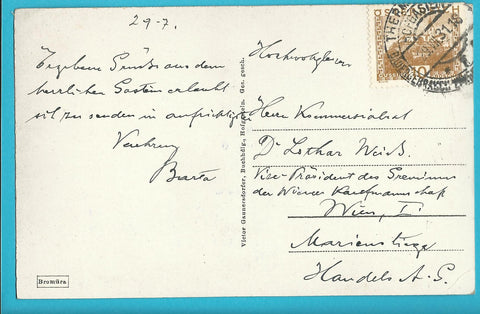 29-7.
Ergebene Grüße aus dem
herrlichen Gastein erlaubt
sich zu senden in aufrichtiger
Verehrung
Barta
Victor Gaunersdorfer, Buchhdlg., Hofgastein. Ges. gesch.
Bromüra
Hochwohlgeboren
Herrn Kommerzialrat
Dr. Lothar Weiß.
Vize-Präsident des Gremiums
der Wiener Kaufmannschaft
Wien, I.
Marienstiege
Handels A.G.